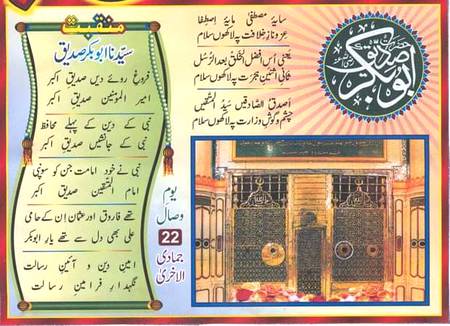 منقبت
سیّدنا ابوبکر صدیق
فروغِ روئے دیں صدیق اکبر
امیر المؤمنین صدیق اکبر
نبی کے دین کے پہلے محافظ
نبی کے جانشیں صدیق اکبر
نبی نے خود امامت جن کو سونپی
امام المتّقین صدیق اکبر
تھے فاروق اور عثمان ان کے حامی
علی بھی دل سے تھے یارِ ابوبکر
امینِ دین و آئینِ رسالت
نگہدارِ فرامینِ رسالت
یوم
وصال
22
جمادی
الاخریٰ
سایۂ مصطفیٰ مایۂ اصطفا
عزّ و نازِ خلافت پہ لاکھوں سلام
یعنی اُس افضل الخلق بعد الرسل
ثانی اثنین ہجرت پہ لاکھوں سلام
اصدق الصادقین سید المتقین
چشم و گوشِ وزارت پہ لاکھوں سلام
ابوبکر صدیق